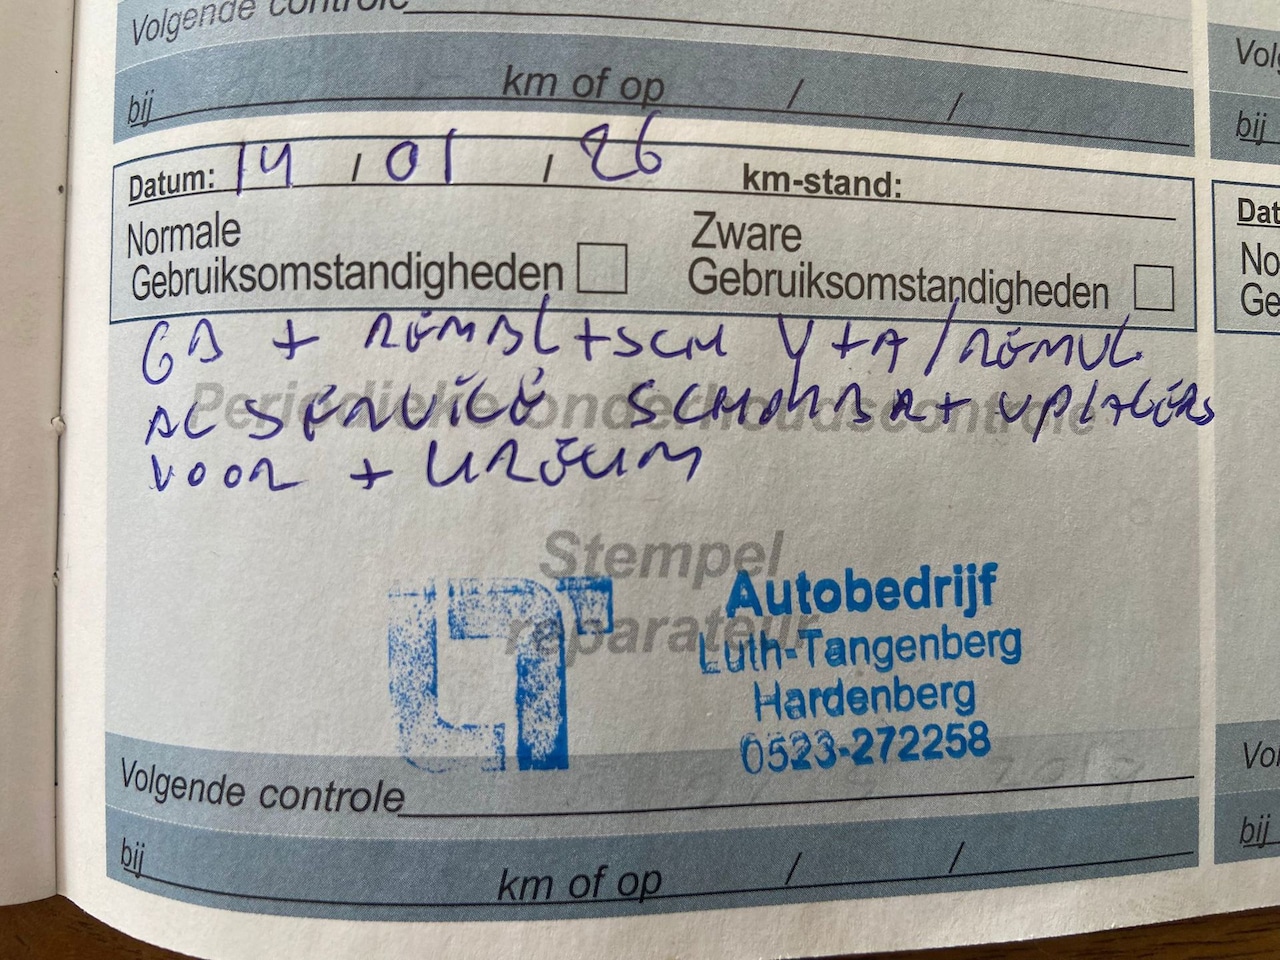 Volgende controle
bij km of op / /
Datum: 14 / 01 / 26 km-stand:
Normale
Gebruiksomstandigheden
Zware
Gebruiksomstandigheden
GB + REMBL + SCH V + A / REMVL
AC SERVICE SCHOKBR +
VOOR +
Periodieke onderhoudscontrole
Stempel
reparateur
Autobedrijf
Luth-Tangenberg
Hardenberg
0523-272258
Volgende controle
bij km of op / /
Vol
bij
Dat
No
Ge
Vol
bij